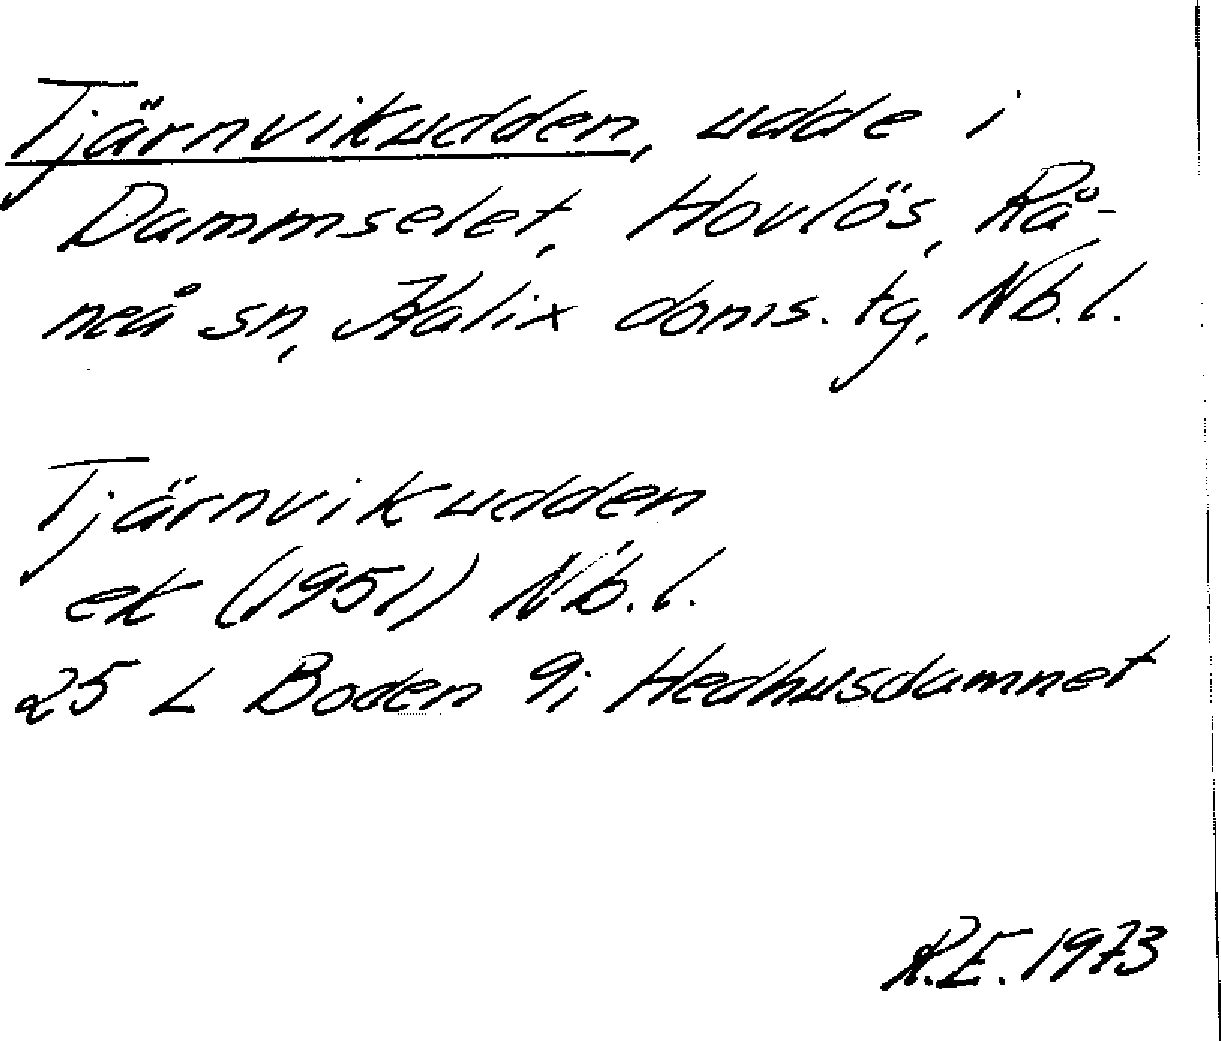 Tjärnvikudden, udde i
Dammselet, Hovlös, Rå-
neå sn, Kalix doms. tg, Nb. l.
Tjärnvikudden
ek (1951) Nb. l.
25 L Boden 9i Hedhusdamnet
R.E. 1973